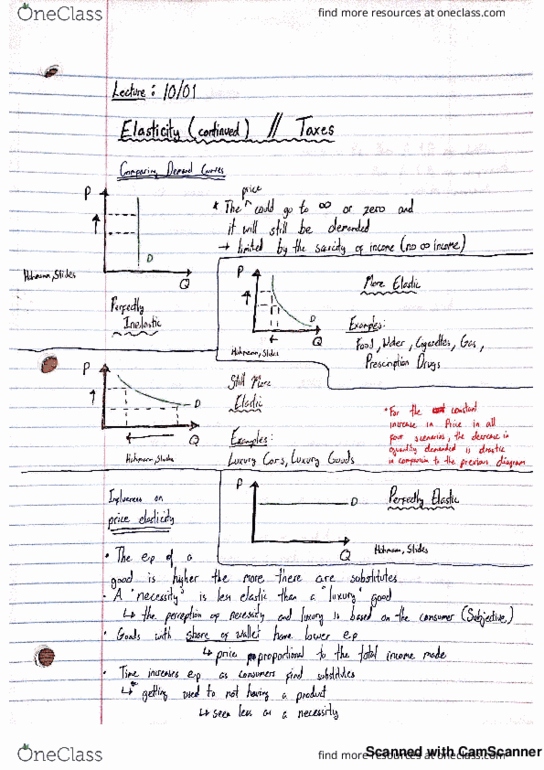 OneClass
find more resources at oneclass.com
Lecture : 10/01
Elasticity (continued) // Taxes
Comparing Demand Curves
P
D
Q
Hohmann, Slides
Perfectly
Inelastic
* The price could go to ∞ or zero and
it will still be demanded
→ limited by the scarcity of income (no ∞ income)
P
D
Q
Hohmann, Slides
More Elastic
Examples:
Food, Water, Cigarettes, Gas,
Prescription Drugs
P
D
Q
Hohmann, Slides
Still More
Elastic
Examples:
Luxury Cars, Luxury Goods
* For the constant
increase in Price in all
four scenarios, the decrease in
quantity demanded is drastic
in comparison to the previous diagram
P
D
Q
Hohmann, Slides
Perfectly Elastic
Influences on
price elasticity
• The e.p of a
good is higher the more there are substitutes
• A "necessity" is less elastic than a "luxury" good
↳ the perception of necessity and luxury is based on the consumer (Subjective)
• Goods with share of wallet have lower e.p
↳ price proportional to the total income made
• Time increases e.p as consumers find substitutes
↳ getting used to not having a product
↳ seen less as a necessity
OneClass
find more resources at oneclass.com
Scanned with CamScanner